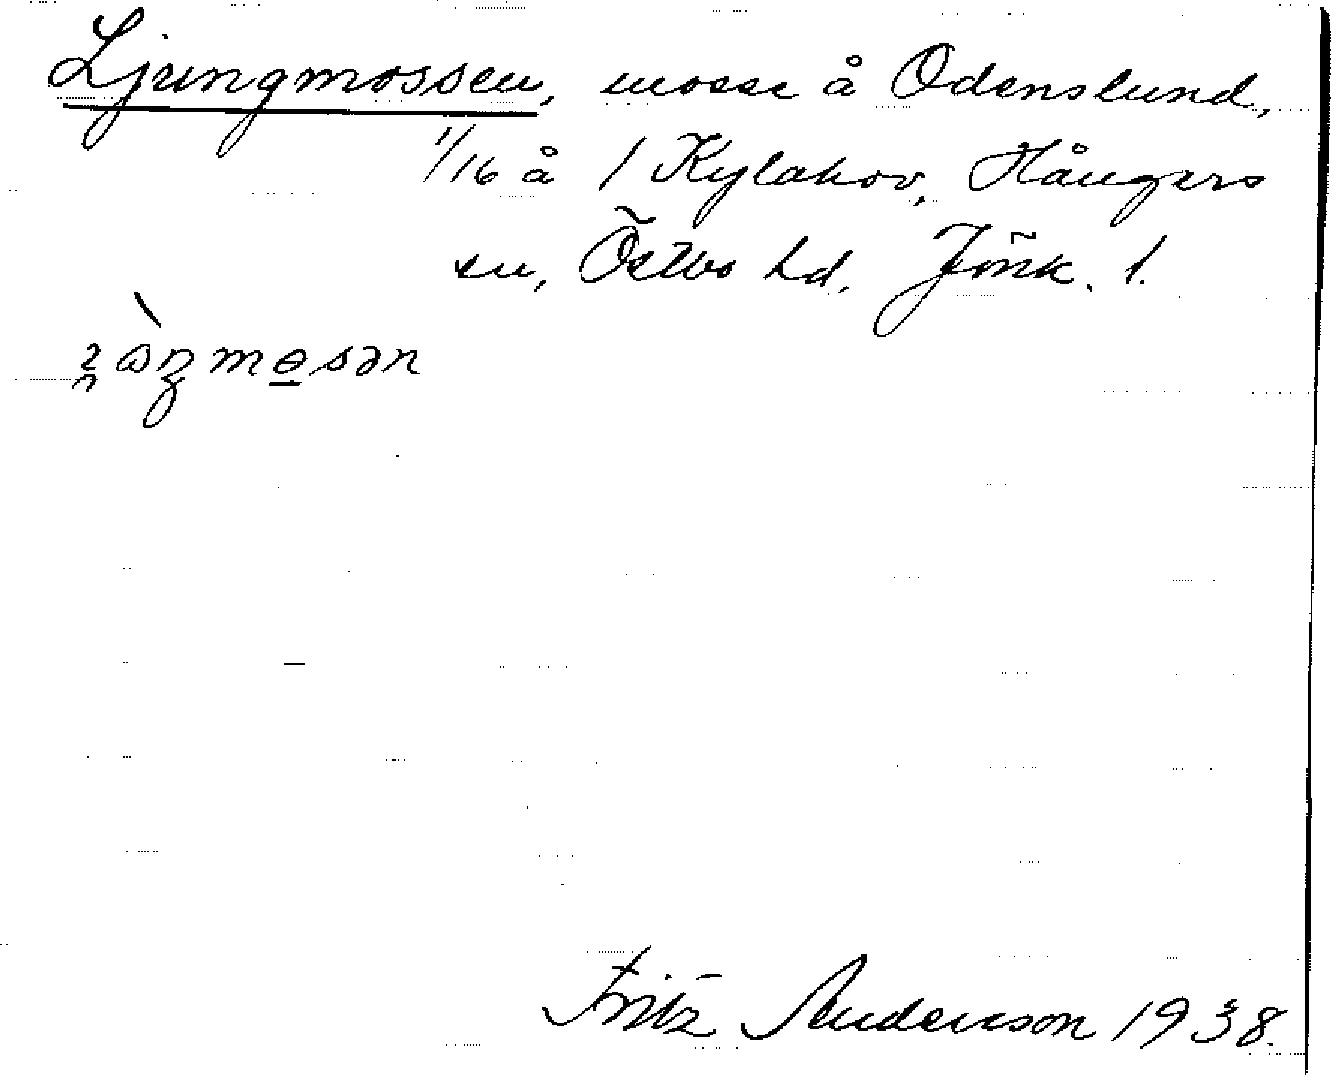 Ljungmossen, mosse å Odenslund,
1/16 å 1 Kylahov, Hångers
sn, Östbo hd, Jönk. l.
Fritz Anderson 1938.